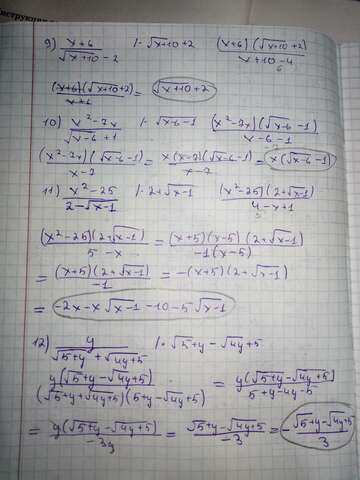 Инструкция
9) x+6 / √x+10 - 2   /· √x+10 + 2   (x+6)(√x+10 + 2) / x+10-4
(x+6)(√x+10 + 2) / x+6 = √x+10 + 2
10) x²-7x / √x-6 + 1   /· √x-6 - 1   (x²-7x)(√x-6 - 1) / x-6-1
(x²-7x)(√x-6 - 1) / x-7 = x(x-7)(√x-6 - 1) / x-7 = x(√x-6 - 1)
11) x²-25 / 2-√x-1   /· 2+√x-1   (x²-25)(2+√x-1) / 4-x+1
(x²-25)(2+√x-1) / 5-x = (x+5)(x-5)(2+√x-1) / -1(x-5)
= (x+5)(2+√x-1) / -1 = -(x+5)(2+√x-1)
= -2x-x√x-1 -10-5√x-1
12) y / √5+y + √4y+5   /· √5+y - √4y+5
y(√5+y - √4y+5) / (√5+y + √4y+5)(√5+y - √4y+5) = y(√5+y - √4y+5) / 5+y-4y-5
= y(√5+y - √4y+5) / -3y = √5+y - √4y+5 / -3 = - √5+y - √4y+5 / 3